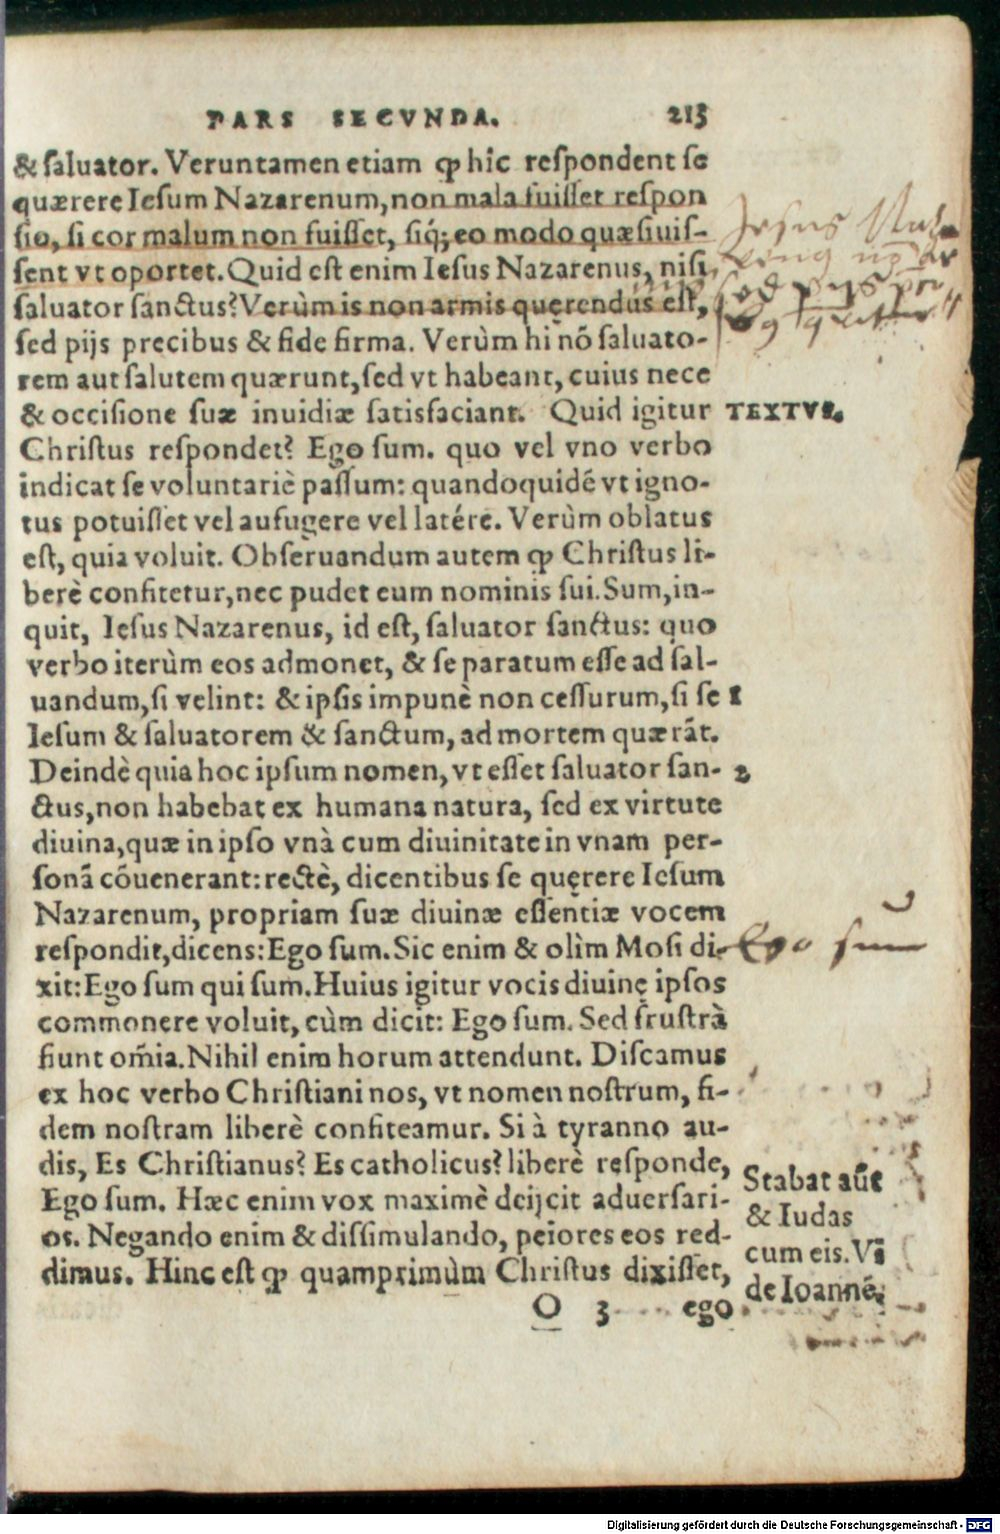 PARS SECVNDA. 213
& saluator. Veruntamen etiam ꝙ hîc respondent se
quærere Iesum Nazarenum, non mala fuisset respon
sio, si cor malum non fuisset, siq́; eo modo quæsiuis-
sent vt oportet. Quid est enim Iesus Nazarenus, nisi
saluator sanctus? Verùm is non armis quęrendus est,
sed pijs precibus & fide firma. Verùm hi nõ saluato-
rem aut salutem quærunt, sed vt habeant, cuius nece
& occisione suæ inuidiæ satisfaciant. Quid igitur
TEXTVS.
Christus respondet? Ego sum. quo vel vno verbo
indicat se voluntariè passum: quandoquidé vt igno-
tus potuisset vel aufugere vel latére. Verùm oblatus
est, quia voluit. Obseruandum autem ꝙ Christus li-
berè confitetur, nec pudet eum nominis sui. Sum, in-
quit, Iesus Nazarenus, id est, saluator sanctus: quo
verbo iterùm eos admonet, & se paratum esse ad sal-
uandum, si velint: & ipsis impunè non cessurum, si se
1
Iesum & saluatorem & sanctum, ad mortem quærãt.
Deindè quia hoc ipsum nomen, vt esset saluator san-
2
ctus, non habebat ex humana natura, sed ex virtute
diuina, quæ in ipso vnà cum diuinitate in vnam per-
sonã cõuenerant: rectè, dicentibus se quęrere Iesum
Nazarenum, propriam suæ diuinæ essentiæ vocem
respondit, dicens: Ego sum. Sic enim & olìm Mosi di-
Ego sum
xit: Ego sum qui sum. Huius igitur vocis diuinę ipsos
commonere voluit, cùm dicit: Ego sum. Sed frustrà
fiunt om̃ia. Nihil enim horum attendunt. Discamus
ex hoc verbo Christiani nos, vt nomen nostrum, fi-
dem nostram liberè confiteamur. Si à tyranno au-
dis, Es Christianus? Es catholicus? liberè responde,
Ego sum. Hæc enim vox maximè deijcit aduersari-
os. Negando enim & dissimulando, peiores eos red-
dimus. Hinc est ꝙ quamprimùm Christus dixisset,
Stabat aũt
& Iudas
cum eis. Vi
de Ioanné.
O 3 ego
Digitalisierung gefördert durch die Deutsche Forschungsgemeinschaft - DFG